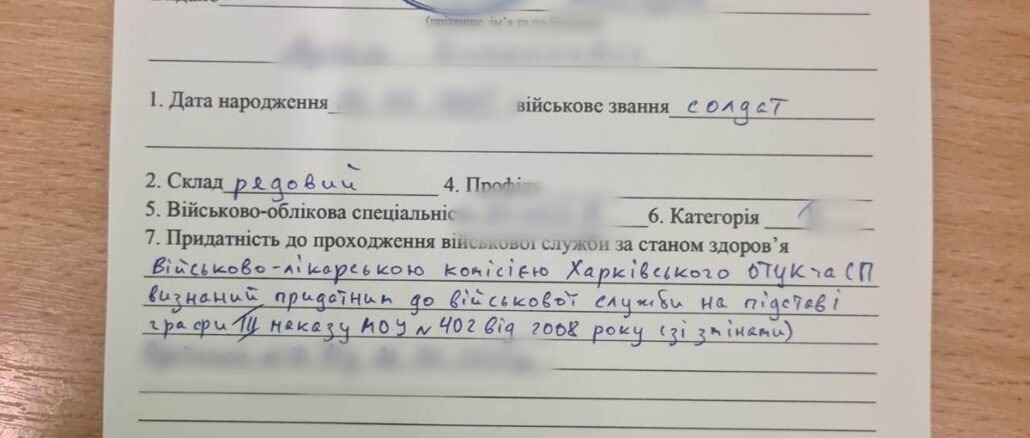 (прізвище, ім'я та по батькові)
1. Дата народження військове звання солдат
2. Склад рядовий 4. Профіль
5. Військово-облікова спеціальніс 6. Категорія
7. Придатність до проходження військової служби за станом здоров'я
Військово-лікарською комісією Харківського ОТЦК та СП
визнаний придатним до військової служби на підставі
графи III наказу МОУ № 402 від 2008 року (зі змінами)